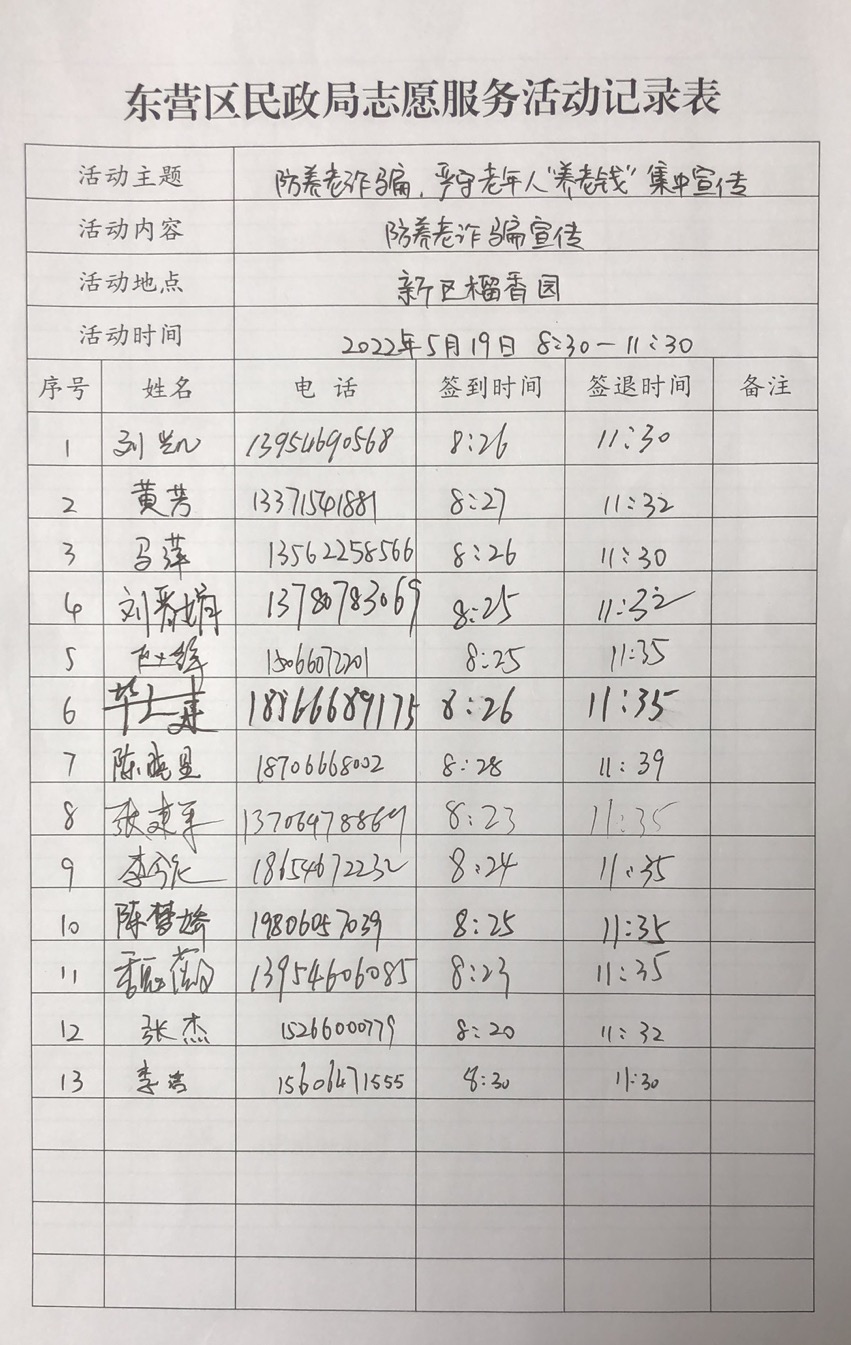 东营区民政局志愿服务活动记录表
活动主题 防养老诈骗，严守老年人“养老钱”集中宣传
活动内容 防养老诈骗宣传
活动地点 新区榴香园
活动时间 2022年5月19日 8:30-11:30
序号 姓名 电话 签到时间 签退时间 备注
1 刘凯 13954690568 8:26 11:30
2 黄芳 13371541881 8:27 11:32
3 马萍 13562258566 8:26 11:30
4 刘春娟 13780783069 8:25 11:32
5 15066072201 8:25 11:35
6 18866689175 8:26 11:35
7 陈晓星 18706668002 8:28 11:39
8 张建军 13706478869 8:23 11:35
9 18654672232 8:24 11:35
10 陈梦娇 19806057039 8:25 11:35
11 13954606085 8:23 11:35
12 张杰 15266000779 8:20 11:32
13 李洁 15606471555 8:30 11:30